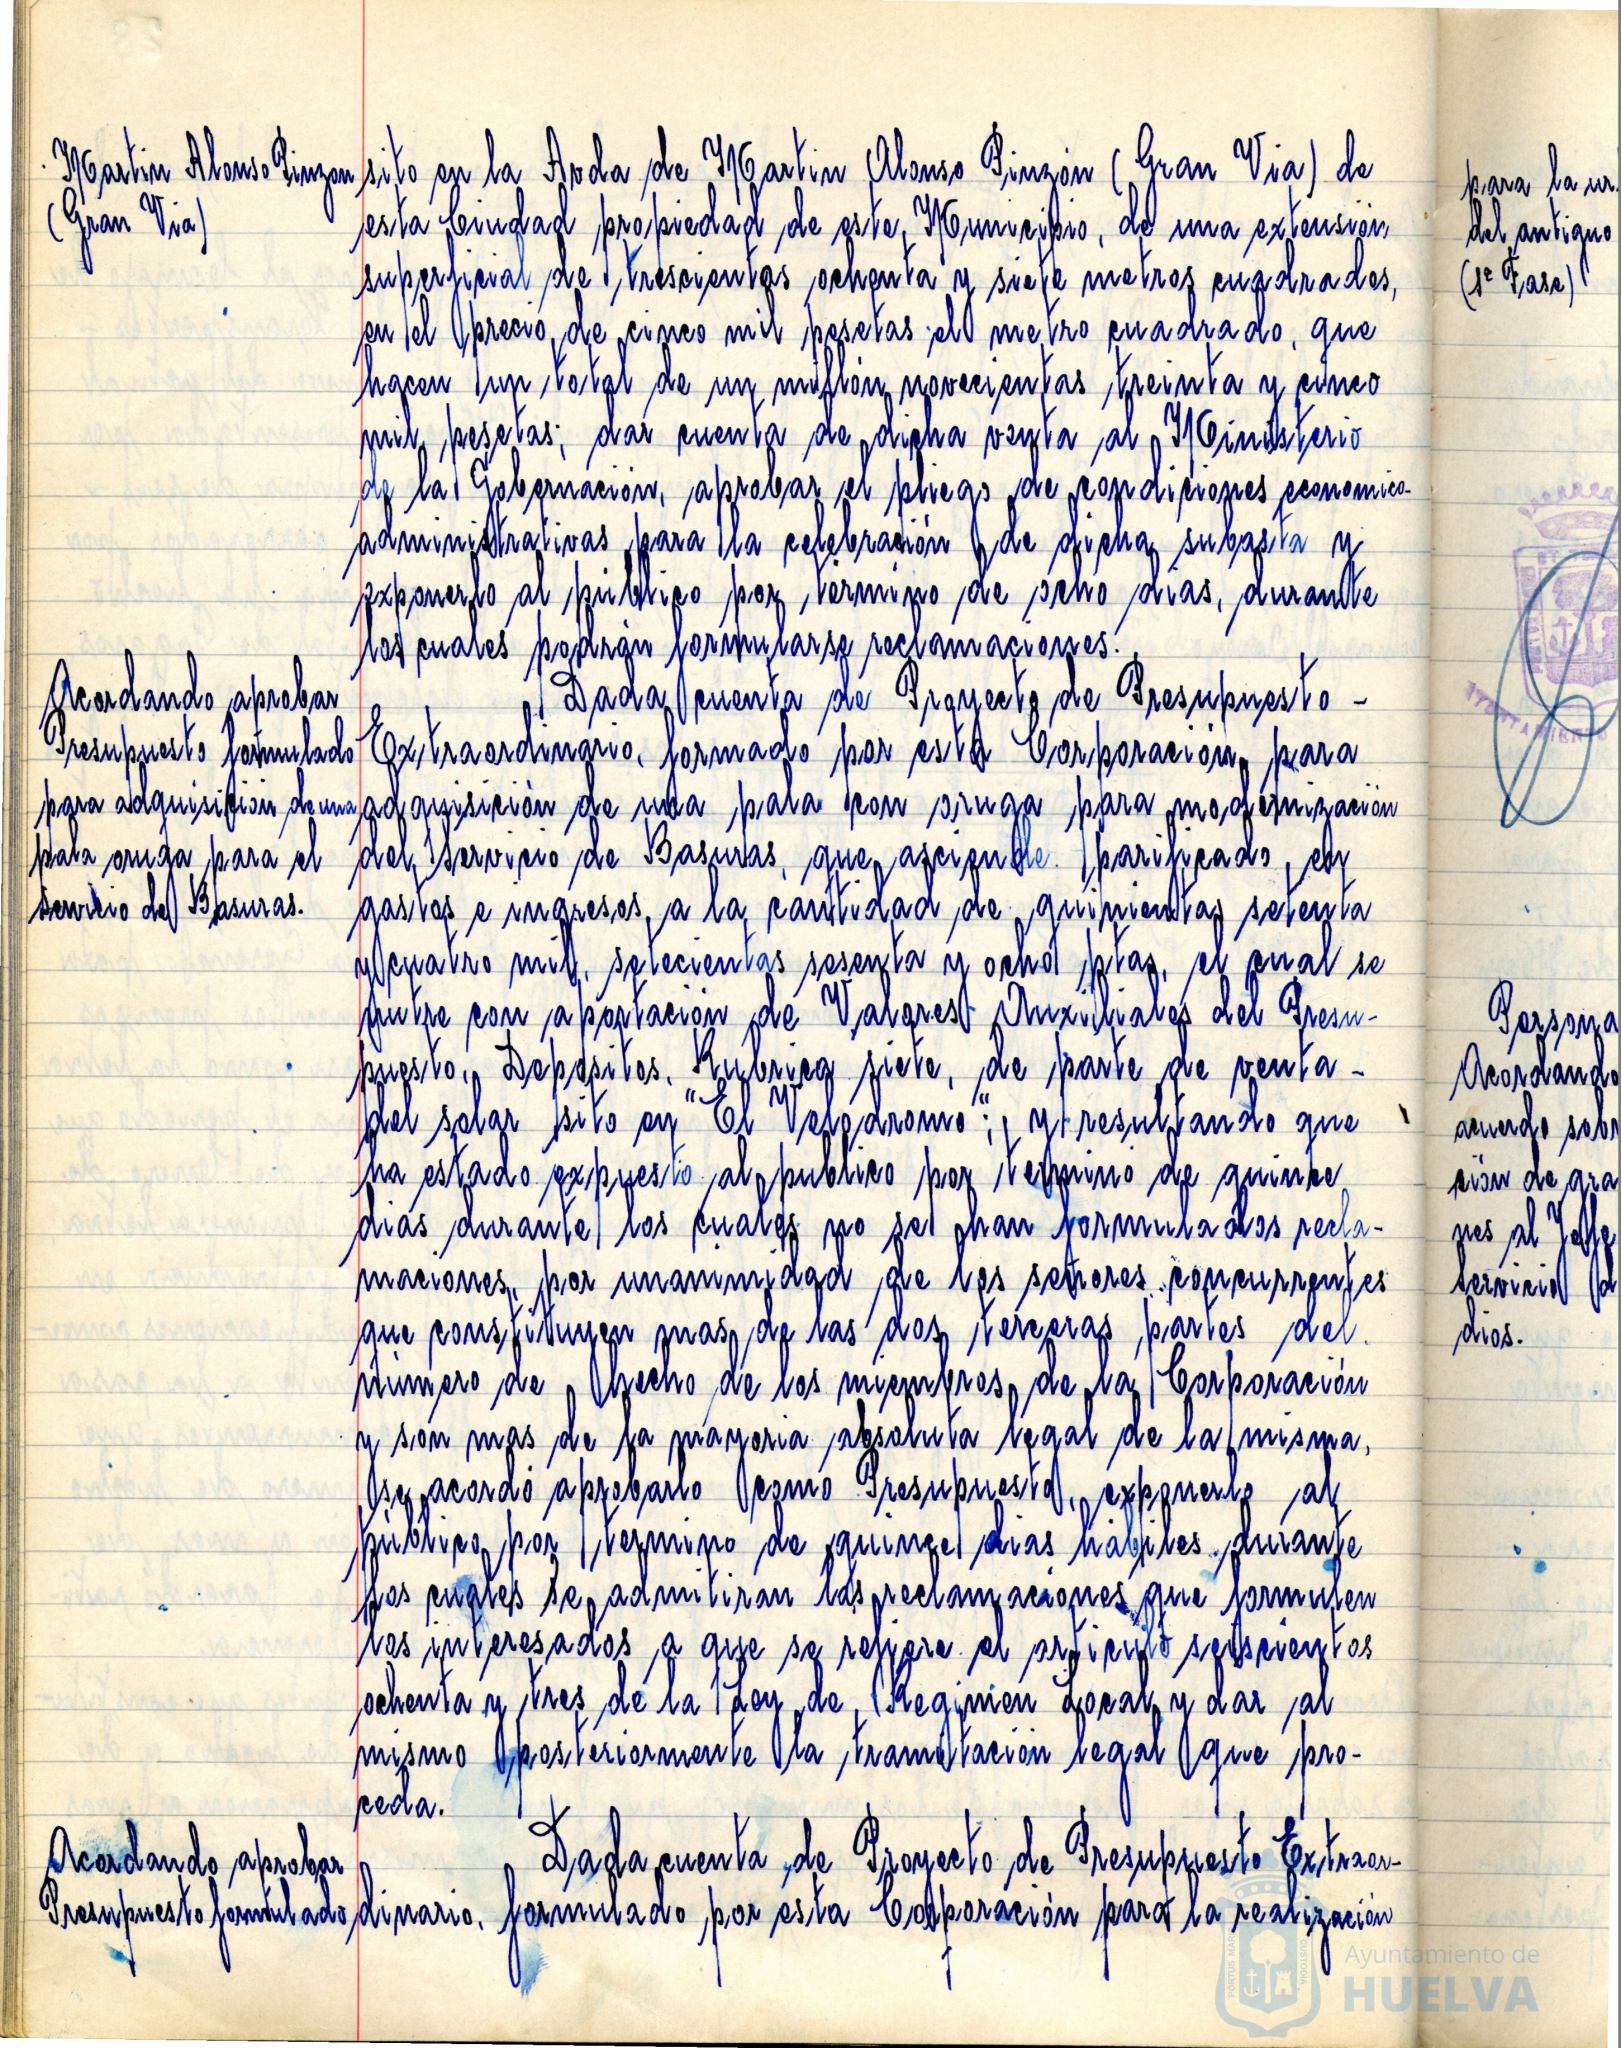 Martin Alonso Pinzon
(Gran Via)
sito en la Avda de Martin Alonso Pinzón (Gran Via) de
esta Ciudad propiedad de este Municipio, de una extensión
superficial de trescientas ochenta y siete metros cuadrados,
en el precio de cinco mil pesetas el metro cuadrado, que
hacen un total de un millón novecientas treinta y cinco
mil pesetas; dar cuenta de dicha venta al Ministerio
de la Gobernación, aprobar el pliego de condiciones economico-
administrativas para la celebración de dicha subasta y
exponerlo al público por término de ocho dias, durante
los cuales podrán formularse reclamaciones.
Acordando aprobar
Presupuesto formulado
para adquisición de una
pala oruga para el
servicio de Basuras.
Dada cuenta de Proyecto de Presupuesto -
Extraordinario, formado por esta Corporación, para
adquisición de una pala con oruga para modernización
del Servicio de Basuras, que asciende parificado, en
gastos e ingresos, a la cantidad de quinientas setenta
y cuatro mil, setecientas sesenta y ocho ptas, el cual se
nutre con aportación de Valores Auxiliares del Presu-
puesto. Depositos. Rubrica siete, de parte de venta -
del solar sito en "El Velodromo"; y resultando que
ha estado expuesto al publico por termino de quince
dias durante los cuales no se han formulados recla-
maciones, por unanimidad de los señores concurrentes
que constituyen mas de las dos terceras partes del
número de hecho de los miembros de la Corporación
y son mas de la mayoria absoluta legal de la misma,
se acordó aprobarlo como Presupuesto, exponerlo al
público por termino de quince dias hábiles durante
los cuales se admitiran las reclamaciones que formulen
los interesados a que se refiere el articulo seiscientos
ochenta y tres de la Ley de Regimen Local y dar al
mismo posteriormente la tramitación legal que pro-
ceda.
Acordando aprobar
Presupuesto formulado
Dada cuenta de Proyecto de Presupuesto Extraor-
dinario, formulado por esta Corporación para la realización
para la ur.
del antiguo
(1ª Fase)
Persona
Acordando
acuerdo sobr
ción de gra
nes al Jefe
Servicio d
dios.
Ayuntamiento de
HUELVA